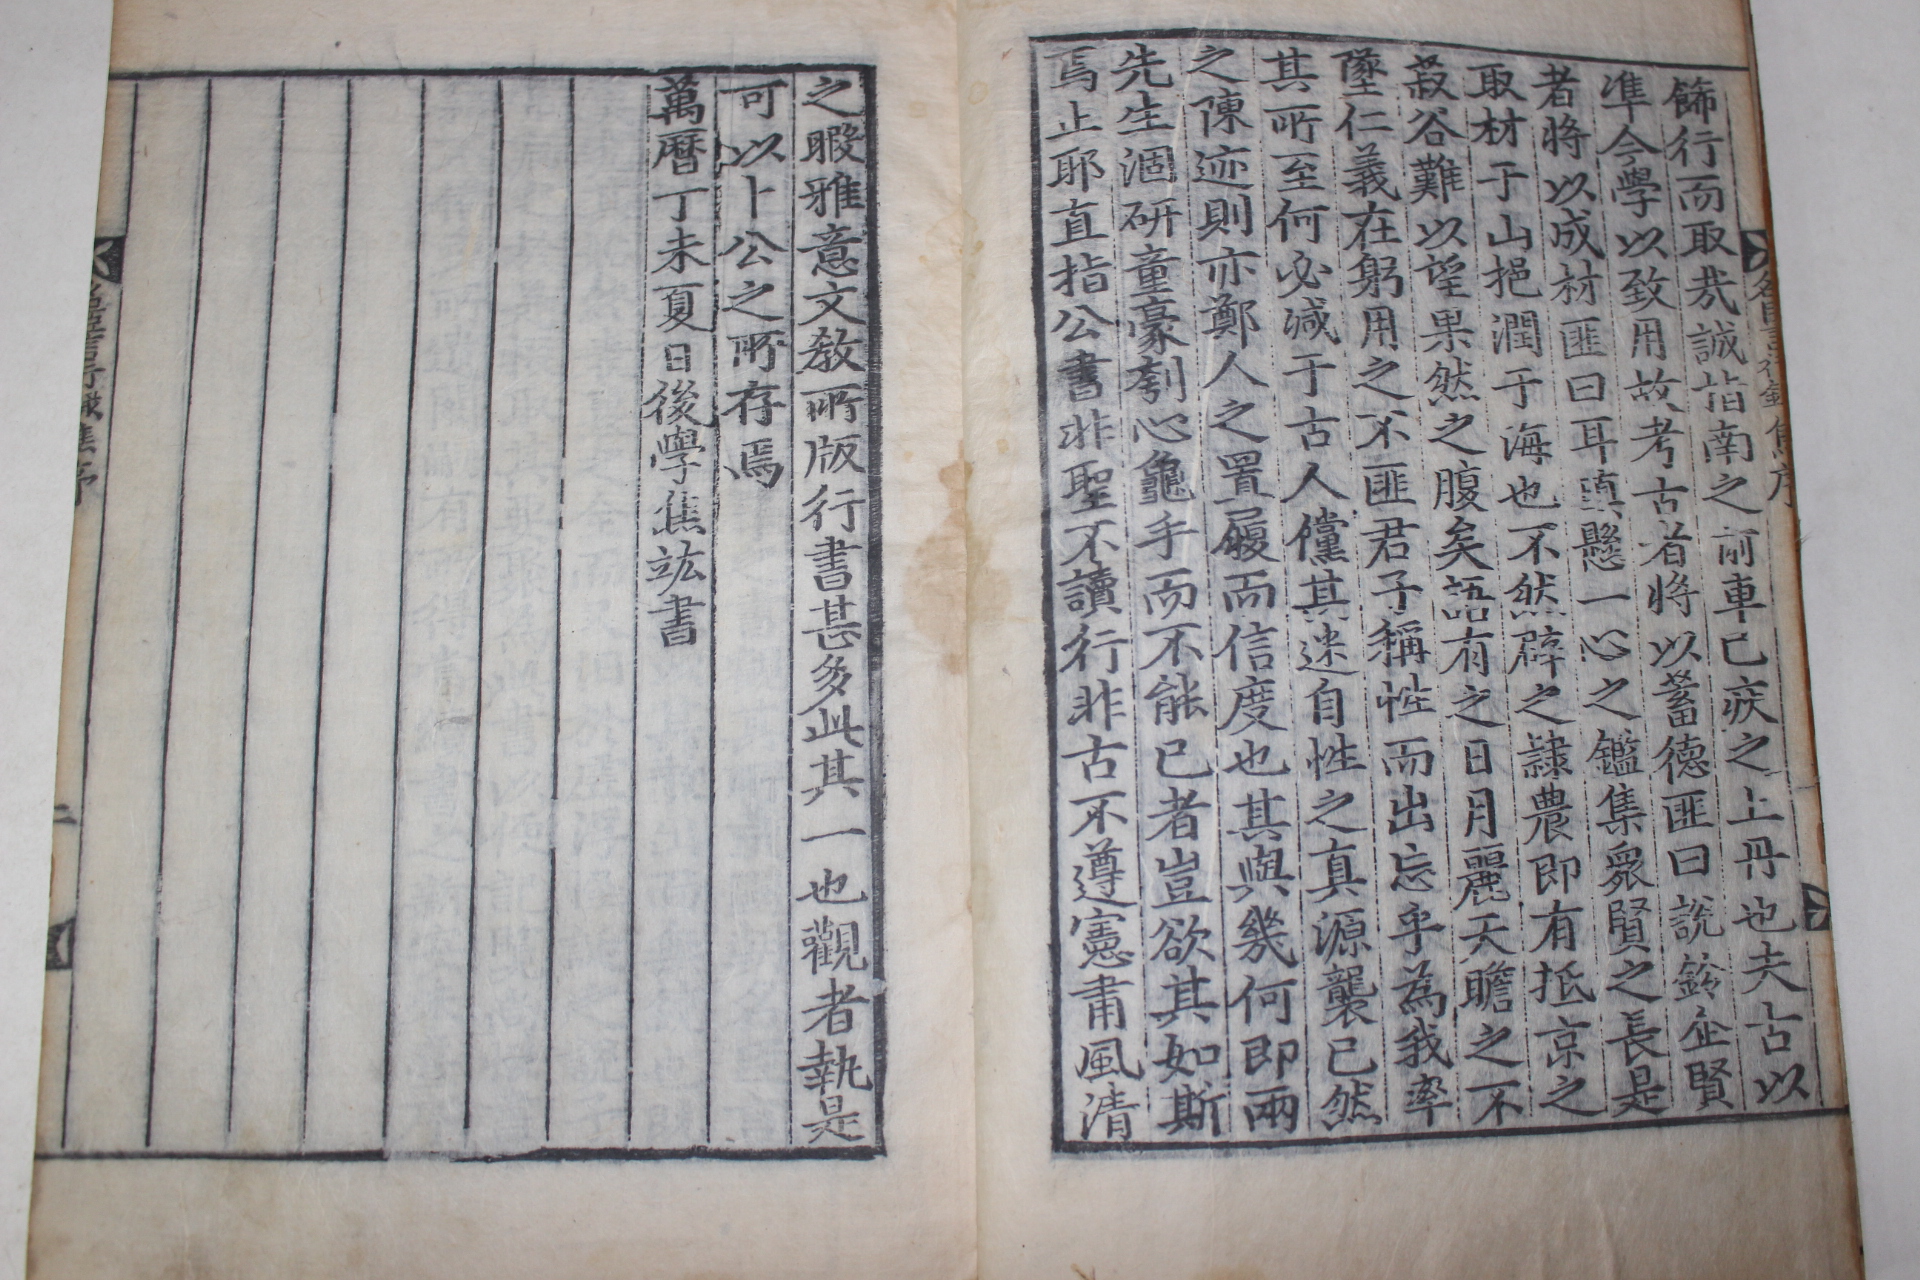 飾行而取哉誠指南之前車已疾之上丹也夫古以
準今學以致用故考古者將以蓄德匪曰說鈴企賢
者將以成材匪曰耳瑱懸一心之鑑集衆賢之長是
取材于山挹潤于海也不然辟之隷農即有抵京之
菽谷難以望果然之腹矣語有之日月麗天瞻之不
墜仁義在躬用之不匪君子稱性而出忘乎為我率
其所至何必減于古人儻其迷自性之真源襲已然
之陳迹則亦鄭人之置履而信度也其與幾何即兩
先生涸研童豪刳心龜手而不能已者豈欲其如斯
焉止耶直指公書非聖不讀行非古不遵憲肅風清
之暇雅意文教所版行書甚多此其一也觀者執是
可以卜公之所存焉
萬曆丁未夏日後學焦竑書